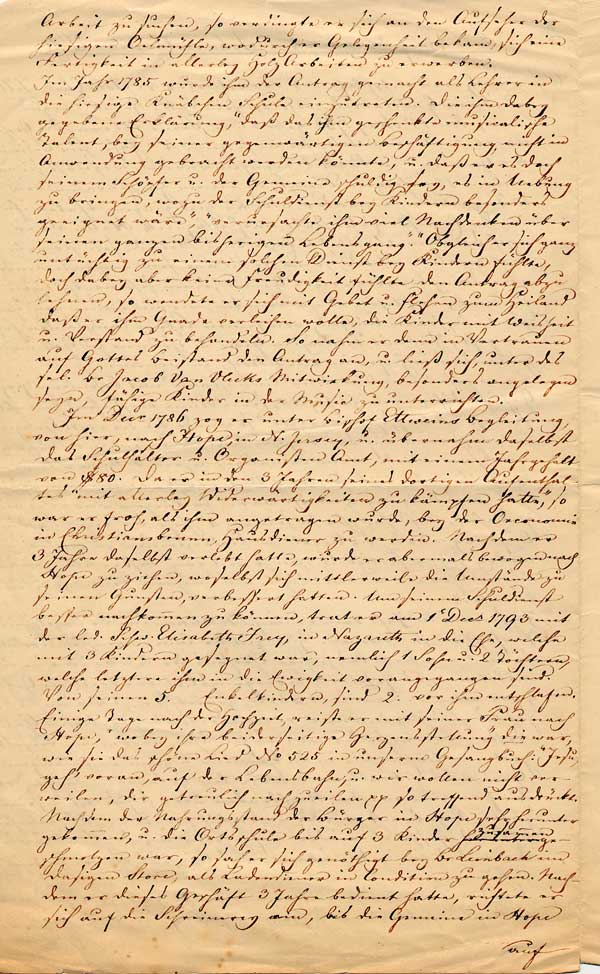 Arbeit zu suchen, so verdingte er sich an den Aufseher der
hiesigen Oelmühle, wodurch er Gelegenheit bekam, sich eine
Fertigkeit in allerley Holz Arbeiten zu erwerben.
Im Jahr 1785 wurde ihm der Antrag gemacht als Lehrer in
die hiesige Knäbchen Schule einzutreten. Die ihm dabey
gegebene Erklärung, "daß das ihm geschenkte musicalische
Talent, bey seiner gegenwärtigen Beschäftigung nicht in
Anwendung gebracht werden könnte, u. daß er es doch
seinem Schöpfer u. der Gemeine schuldig sey, es in Uebung
zu bringen, wozu der Schuldienst bey Kindern besonders
geeignet wäre," "verursachte ihm viel Nachdenken über
seinen ganzen bisherigen Lebensgang." Obgleich er sich ganz
untüchtig zu einem solchen Dienst bey Kindern fühlte,
doch dabey aber keine Freudigkeit fühlte den Antrag abzu
lehnen, so wendete er sich mit Gebet u. Flehen zum Heiland
daß er ihm Gnade verleihen wolle, die Kinder mit Weisheit
u. Verstand zu behandeln. So nahm er denn im Vertrauen
auf Gottes Beistand den Antrag an, u. ließ sich, unter des
sel. Br Jacob Van Vlecks Mitwirkung, besonders angelegen
seyn, fähige Kinder in der Music zu unterrichten.
Im Decr 1786 zog er unter Bischof Ettweins Begleitung,
von hier, nach Hope, in N. Jersey, u. übernahm daselbst
das Schulhalter u. Organisten Amt, mit einem Jahrgehalt
von $80. Da er in den 3 Jahren seines dortigen Aufenthal-
tes "mit allerley Widerwärtigkeiten zu kämpfen hatte", so
war er froh, als ihm angetragen wurde, bey der Oeconomie
in Christiansbrunn, Hausdiener zu werden. Nachdem er
3 Jahre daselbst verlebt hatte, wurde er abermals bewogen nach
Hope zu ziehen, woselbst sich mittlerweile die Umstände zu
seinen Gunsten, verbessert hatten. Um seinem Schuldienst
besser nachkommen zu können, trat er am 1t Decr 1793 mit
der led. Schw. Elisabeth Frey, in Nazareth in die Ehe, welche
mit 3 Kindern gesegnet war, nemlich 1 Sohn u. 2 Töchtern,
welche letztere ihm in die Ewigkeit vorangegangen sind.
Von seinen 5. Enkelkindern, sind 2. vor ihm entschlafen.
Einige Tage nach der Hochzeit, reiste er mit seiner Frau nach
Hope, "wobey ihre beiderseitige Herzensstellung die war,
wie sie das schöne Lied No 525 in unserm Gesangbuch: "Jesu,
geh' voran, auf der Lebensbahn, u. wir wollen nicht ver-
weilen, dir getreulich nachzueilen pp so treffend ausdrückt.
Nachdem der Nahrungsstand der Bürger in Hope sehr herunter
gekommen, u. die Ortsschule bis auf 3 Kinder zusammen ge-
schmolzen war, so sah er sich genöthigt bey Br Leinbach im
dasigen Store, als Ladendiener in Condition zu gehen. Nach-
dem er dieses Geschäft 3 Jahre bedient hatte, richtete er
sich auf die Schreinerey ein, bis die Gemeine in Hope
auf